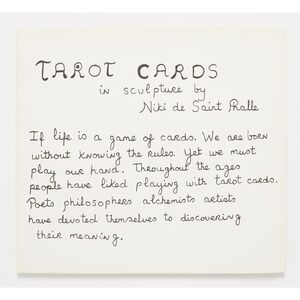 TAROT CARDS
in sculpture by
Niki de Saint Phalle
If life is a game of cards. We are born
without knowing the rules. Yet we must
play our hand. Throughout the ages
people have liked playing with tarot cards.
Poets philosophers alchemists artists
have devoted themselves to discovering
their meaning.